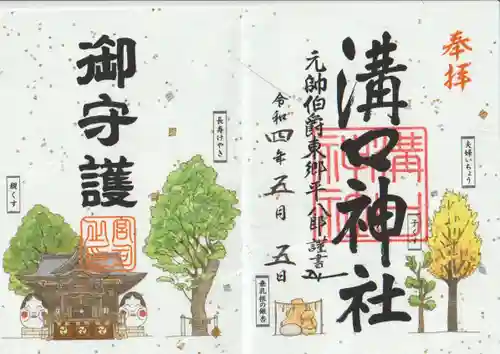 奉拝
溝口神社
元帥伯爵東郷平八郎謹書
令和四年五月五日
夫婦いちょう
垂乳根の銀杏
溝口神社
御守護
長寿けやき
親くす
宮司